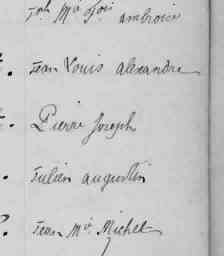 Jph Mie Foi ambroise
Jean Louis alexandre
Pierre Joseph
Julien augustin
Jean Mie Michel